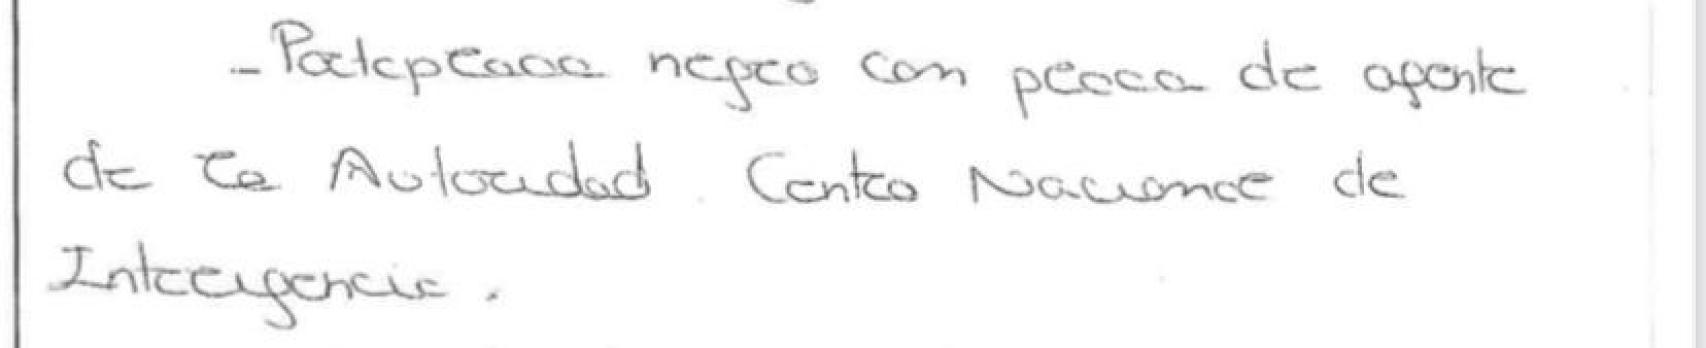 - Portaplaca negro con placa de agente
de la Autoridad. Centro Nacional de
Inteligencia.